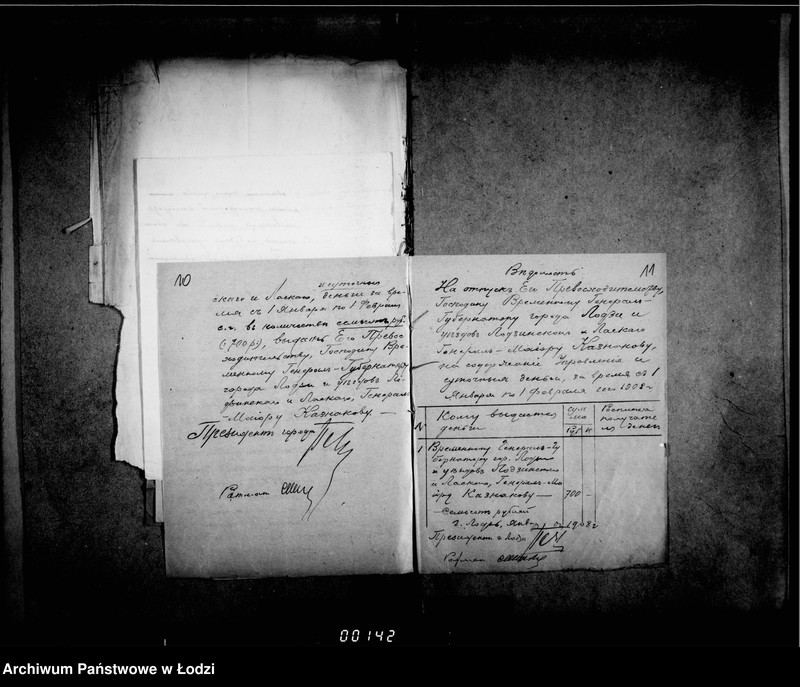 10
и суточныя
скаго и Ласкаго, деньги за вре-
мя съ 1 Января по 1 Февраля
с.г. въ количествѣ семьсотъ руб.
(700 р.), выданъ Его Превос-
ходительству, Господину Вре-
менному Генералъ-Губернатору
города Лодзи и уѣздовъ Ло-
дзинскаго и Ласкаго, Генералъ
-Маіору Казнакову.—
Президентъ города
Ратманъ
11
Вѣдомость
На отпускъ Его Превосходительству,
Господину Временному Генералъ-
Губернатору города Лодзи и
уѣздовъ Лодзинскаго и Ласкаго
Генералъ-Маіору Казнакову,
на содержаніе Управленія и
суточныхъ денегъ, за время съ 1
Января по 1 февраля сего 1908 г.
№ Кому выдаются деньги Сумма Руб. К Росписка получателя денегъ
1 Временному Генералъ-Гу
бернатору гор. Лодзи
и уѣздовъ Лодзинскаго
и Ласкаго, Генералъ-Ма
іору Казнакову — 700 -
— Семьсотъ рублей
г. Лодзь, Января 1908 г.
Президентъ г. Лодзи
Ратманъ
00142
Archiwum Państwowe w Łodzi